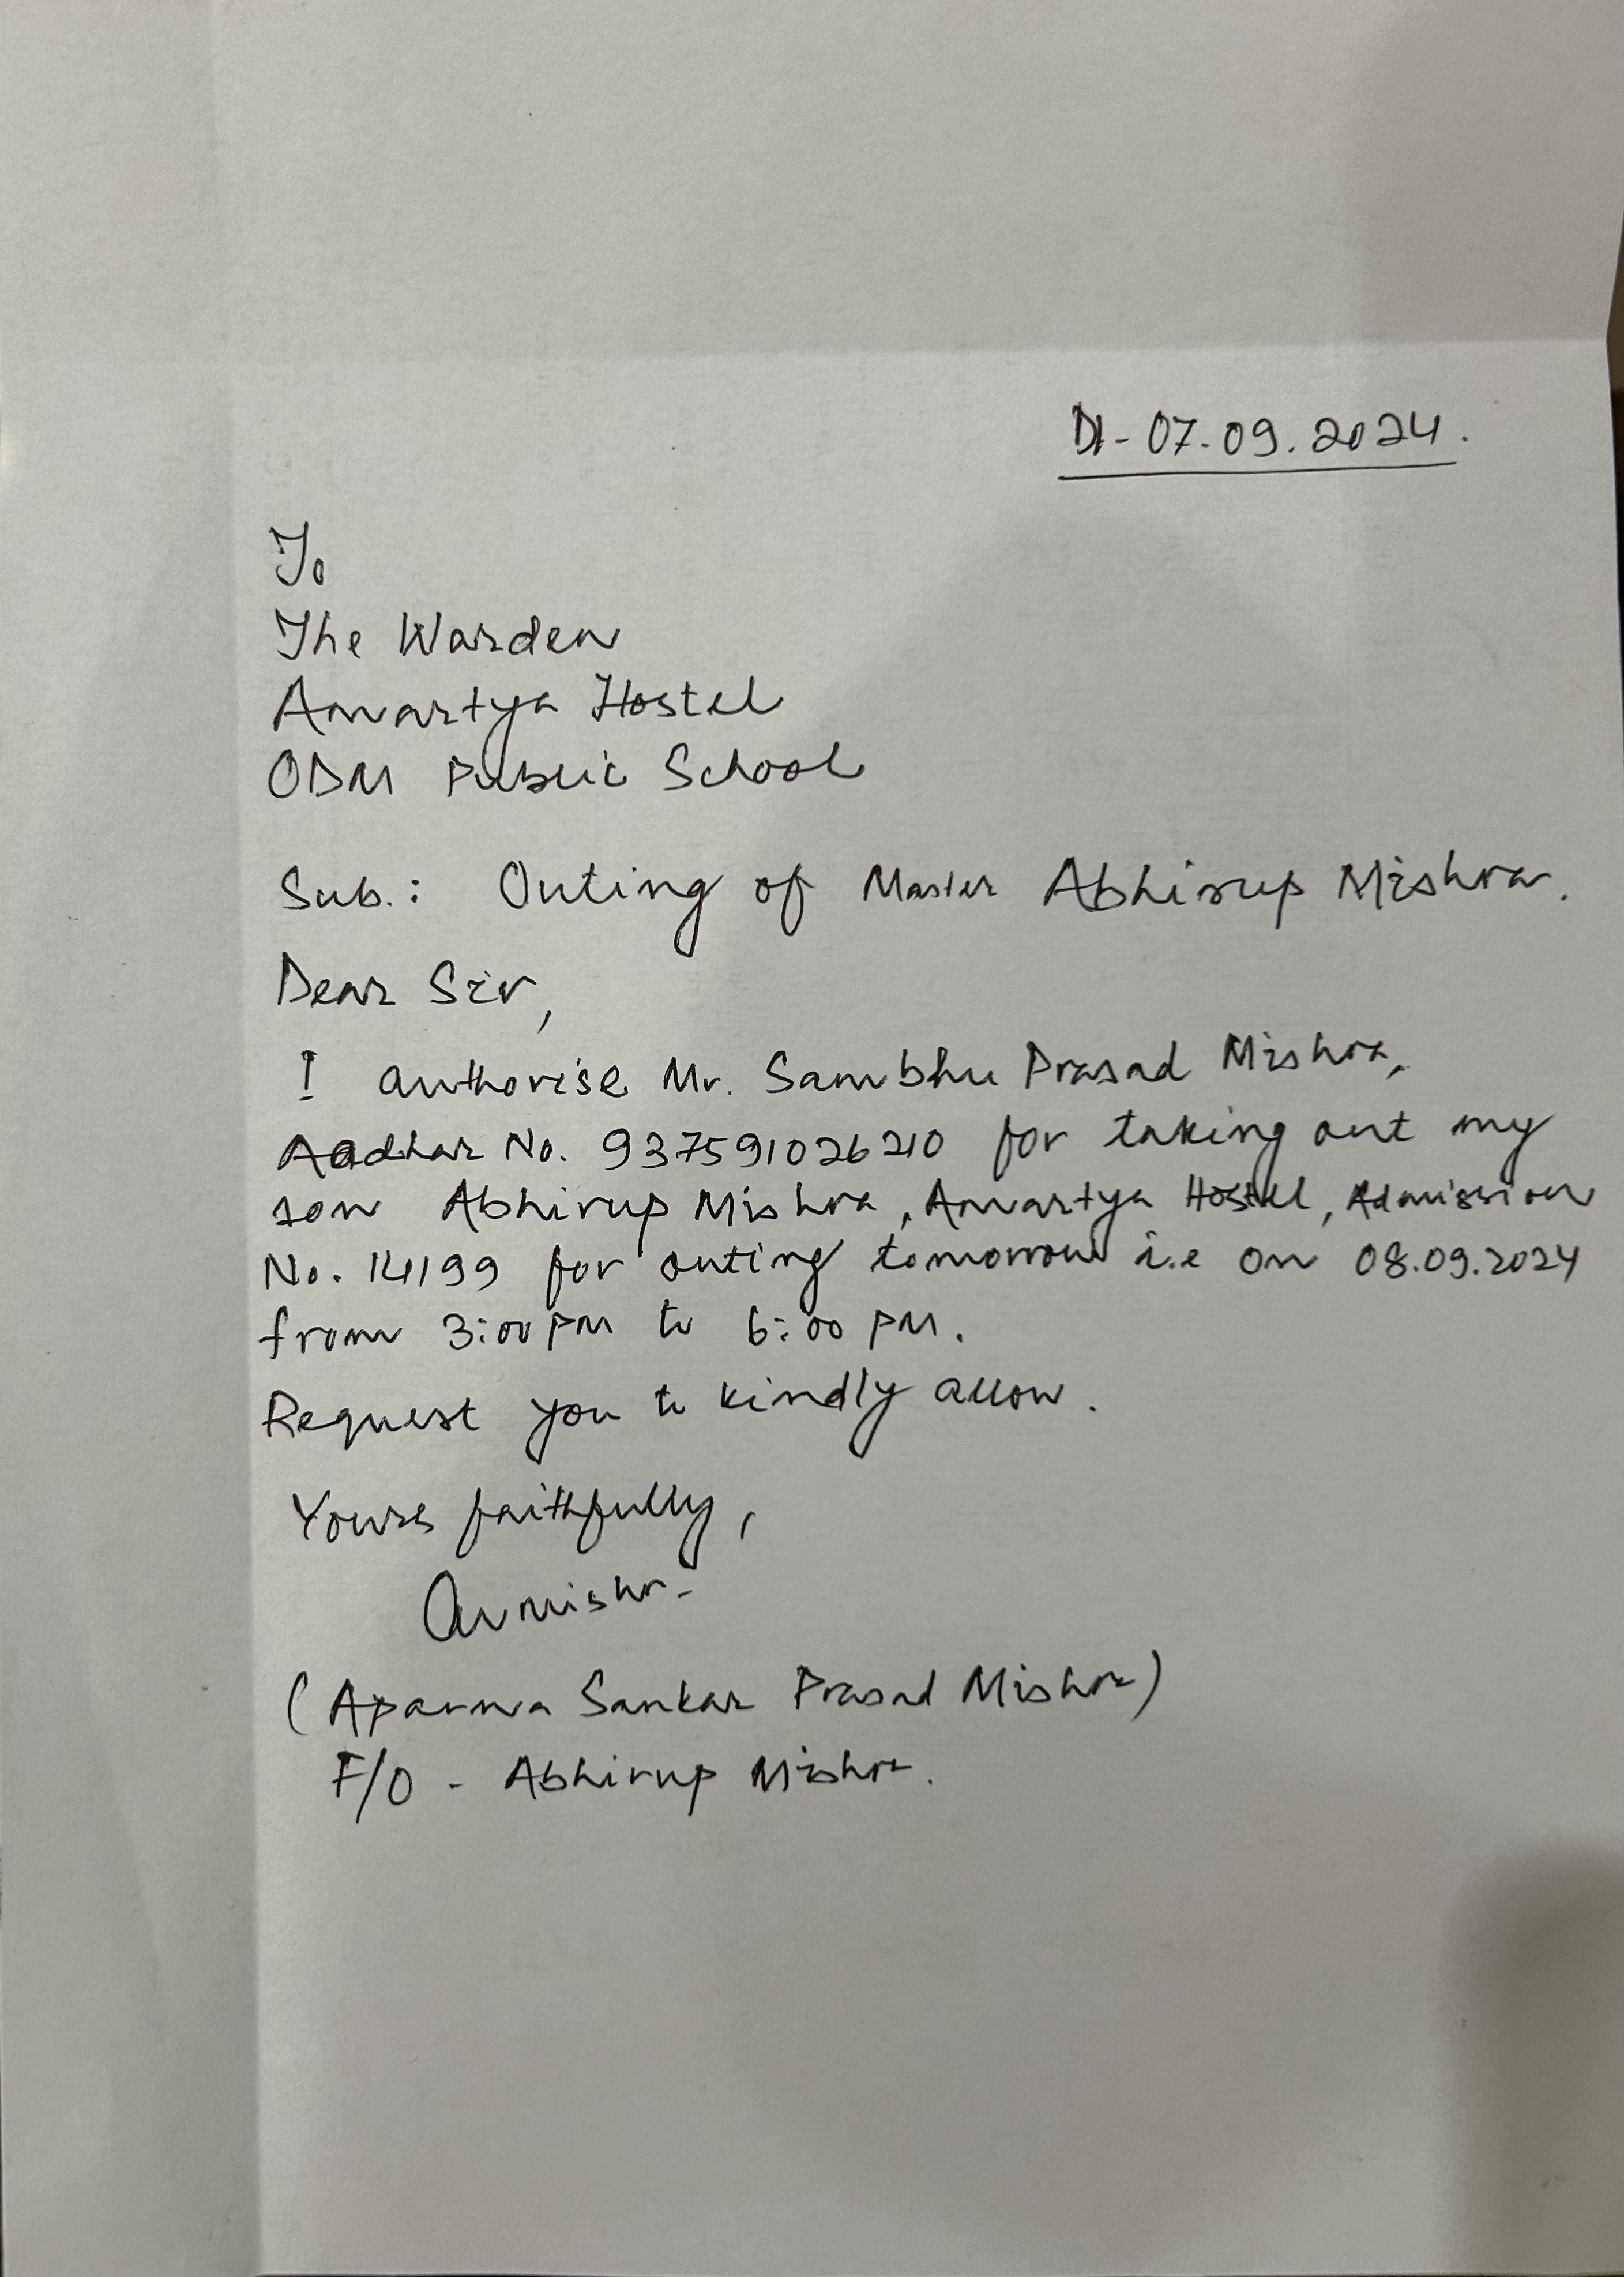 Dt- 07.09.2024.
To
The Warden
Amartya Hostel
ODM Public School
Sub.: Outing of Master Abhirup Mishra.
Dear Sir,
I authorise Mr. Sambhu Prasad Mishra,
Aadhar No. 937591026210 for taking out my
son Abhirup Mishra, Amartya Hostel, Admission
No. 14199 for outing tomorrow i.e on 08.09.2024
from 3:00 PM to 6:00 PM.
Request you to kindly allow.
Yours faithfully,
(Aparna Sankar Prasad Mishra)
F/O - Abhirup Mishra.